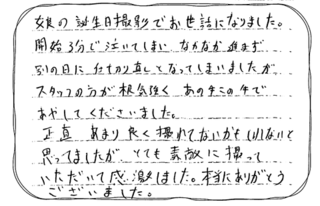 娘の誕生日撮影でお世話になりました。
開始3分で泣いてしまい なかなか進まず
別の日に仕切り直しとなってしまいましたが
スタッフの方が根気強く あの手この手で
あやしてくださいました。
正直 あまり良く撮れてないかもしれないと
思ってましたが、とても素敵に撮って
いただいて感激しました。本当にありがとう
ございました。